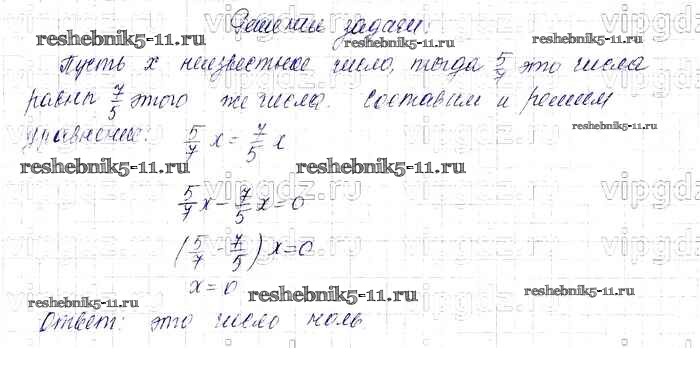 Решение задачи.
Пусть x неизвестное число, тогда 5/7 это числа
равны 7/5 этого же числа. Составим и решим
уравнение: 5/7 x = 7/5 x
5/7 x - 7/5 x = 0
(5/7 - 7/5) x = 0
x = 0
Ответ: это число ноль
reshebnik5-11.ru
reshebnik5-11.ru
reshebnik5-11.ru
reshebnik5-11.ru
reshebnik5-11.ru
reshebnik5-11.ru
reshebnik5-11.ru
reshebnik5-11.ru
vipgdz.ru
vipgdz.ru
vipgdz.ru
vipgdz.ru
vipgdz.ru
vipgdz.ru